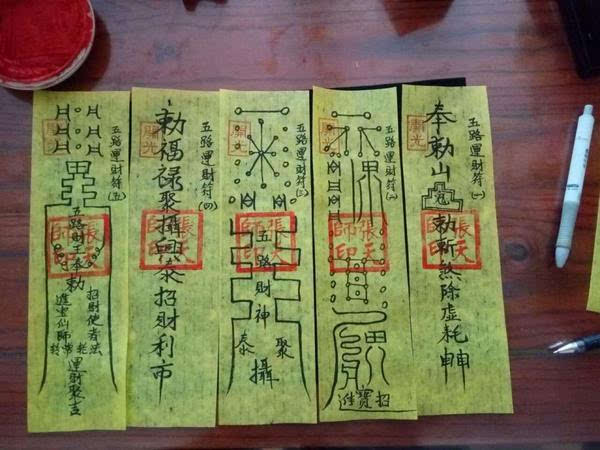 五路運財符(一)
開光
奉勅山
勅斬煞除虛耗
張天
師印
五路運財符(二)
開光
張天
師印
招寶進
五路運財符(三)
開光
五路財神
張天
師印
聚
泰
攝
五路運財符(四)
開光
勅福祿聚攝
泰招財利市
張天
師印
五路運財符(五)
開光
五路財王奉勅
張天
師印
招財使者法
進宝仙師
運財聚吉